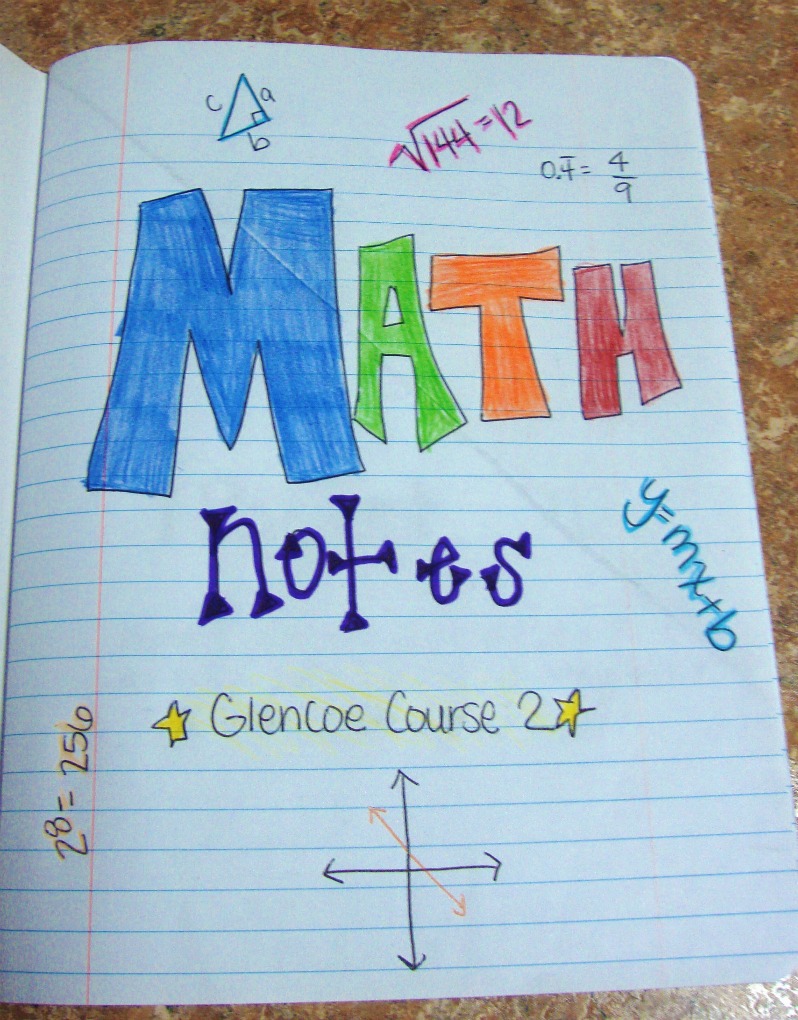 c a
b
√144 = 12
0.4̅ = 4/9
MATH
notes
y=mx+b
Glencoe Course 2
2⁸ = 256